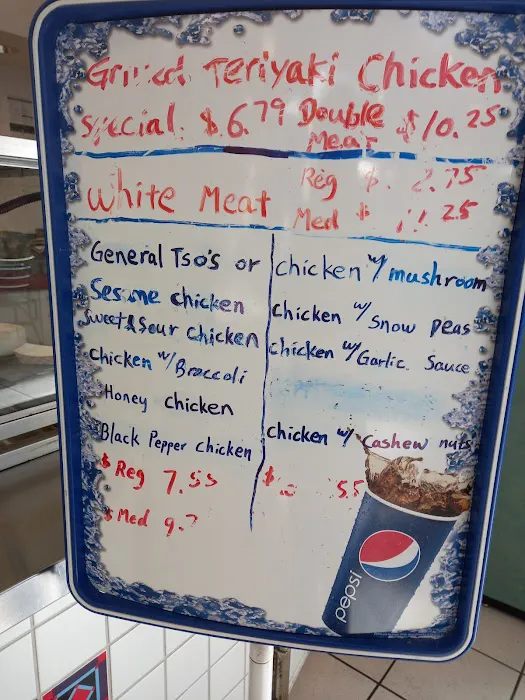 Grilled Teriyaki Chicken
Special $6.79 Double Meat $10.25
White Meat
Reg $ 2.75
Med $ 11.25
General Tso's or
Sesame chicken
Sweet & Sour chicken
Chicken w/Broccoli
Honey chicken
Black Pepper chicken
$ Reg 7.55
$ Med 9.
chicken w/ mushroom
chicken w/ Snow Peas
chicken w/ Garlic Sauce
chicken w/ cashew nuts
$ 55
pepsi